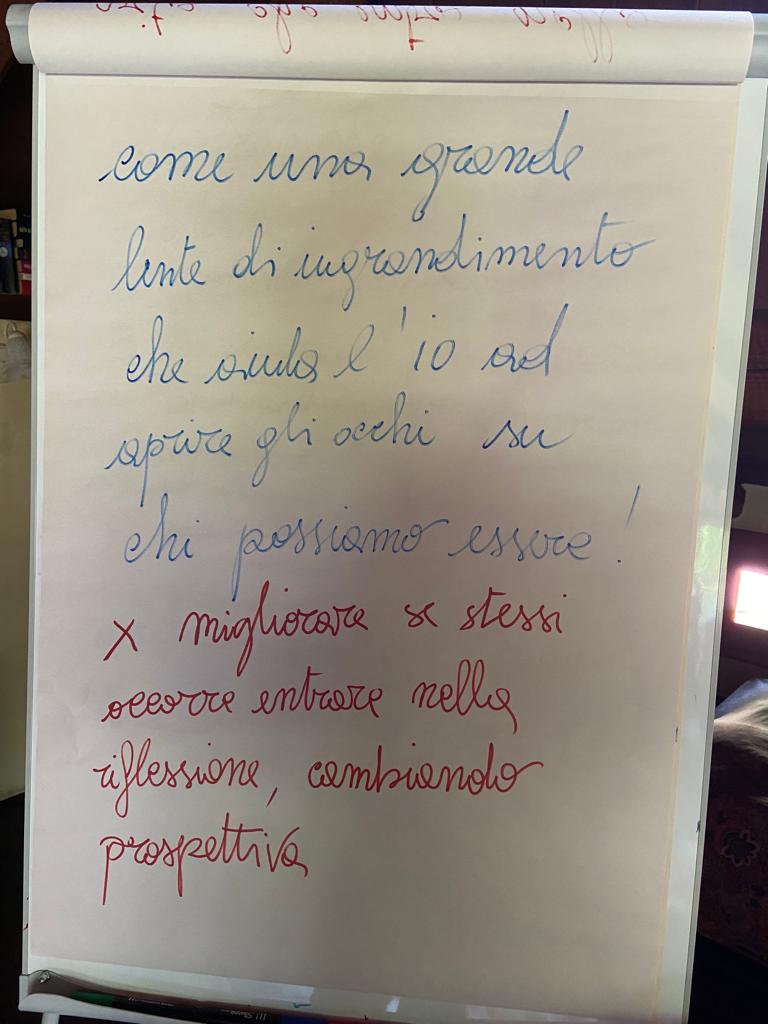 come una grande
lente di ingrandimento
che aiuta l'io ad
aprire gli occhi su
chi possiamo essere!
x migliorare se stessi
occorre entrare nella
riflessione, cambiando
prospettiva